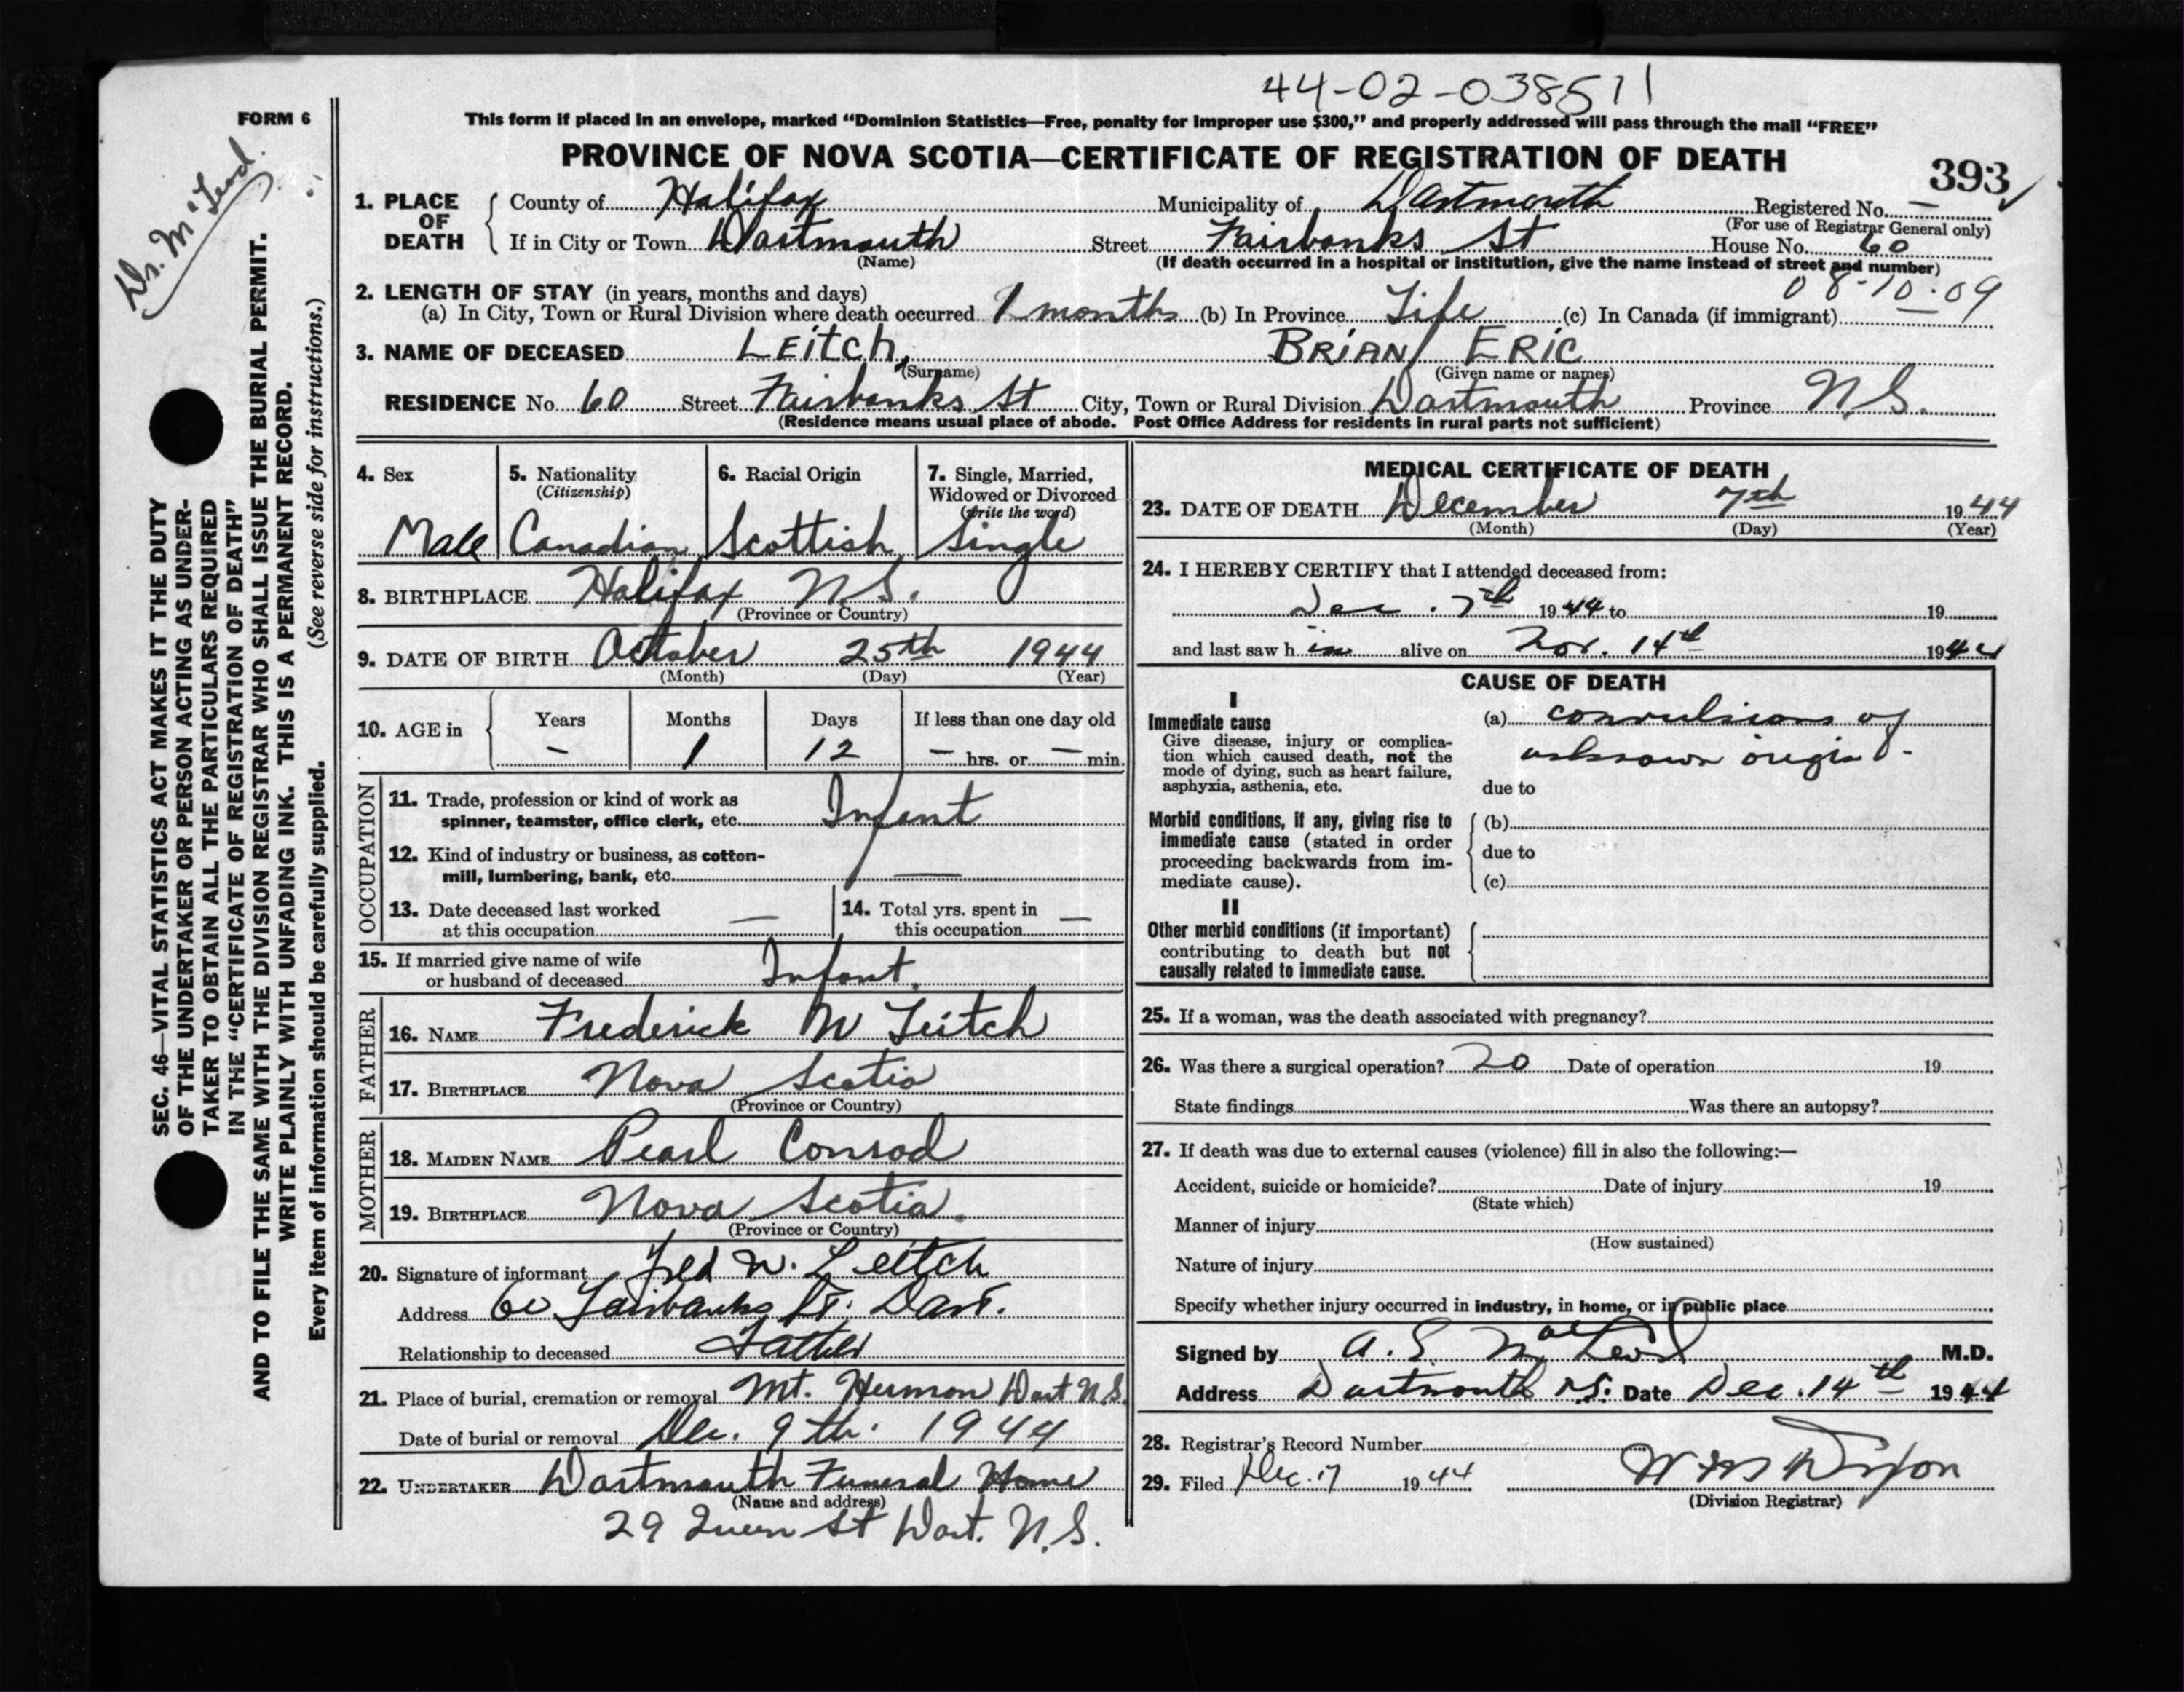 44-02-038511
FORM 6
This form if placed in an envelope, marked “Dominion Statistics—Free, penalty for improper use $300,” and properly addressed will pass through the mail “FREE”
PROVINCE OF NOVA SCOTIA—CERTIFICATE OF REGISTRATION OF DEATH
393
Dr. McLeod.
SEC. 46—VITAL STATISTICS ACT MAKES IT THE DUTY
OF THE UNDERTAKER OR PERSON ACTING AS UNDER-
TAKER TO OBTAIN ALL THE PARTICULARS REQUIRED
IN THE “CERTIFICATE OF REGISTRATION OF DEATH”
AND TO FILE THE SAME WITH THE DIVISION REGISTRAR WHO SHALL ISSUE THE BURIAL PERMIT.
WRITE PLAINLY WITH UNFADING INK. THIS IS A PERMANENT RECORD.
Every item of information should be carefully supplied. (See reverse side for instructions.)
1. PLACE OF DEATH
County of Halifax Municipality of Dartmouth Registered No. —
(For use of Registrar General only)
If in City or Town Dartmouth Street Fairbanks St House No. 60
(Name) (If death occurred in a hospital or institution, give the name instead of street and number)
08-10-09
2. LENGTH OF STAY (in years, months and days)
(a) In City, Town or Rural Division where death occurred 1 months (b) In Province Life (c) In Canada (if immigrant) —
3. NAME OF DECEASED LEitch, BRiAN ERiC
(Surname) (Given name or names)
RESIDENCE No. 60 Street Fairbanks St City, Town or Rural Division Dartmouth Province N.S.
(Residence means usual place of abode. Post Office Address for residents in rural parts not sufficient)
4. Sex
Male
5. Nationality
(Citizenship)
Canadian
6. Racial Origin
Scottish
7. Single, Married,
Widowed or Divorced
(write the word)
Single
8. BIRTHPLACE Halifax N.S.
(Province or Country)
9. DATE OF BIRTH October 25th 1944
(Month) (Day) (Year)
10. AGE in Years Months Days If less than one day old
— 1 12 — hrs. or — min.
OCCUPATION
11. Trade, profession or kind of work as
spinner, teamster, office clerk, etc. Infant
12. Kind of industry or business, as cotton-
mill, lumbering, bank, etc. —
13. Date deceased last worked
at this occupation —
14. Total yrs. spent in
this occupation —
15. If married give name of wife
or husband of deceased Infant.
FATHER
16. NAME Frederick W Leitch
17. BIRTHPLACE Nova Scotia
(Province or Country)
MOTHER
18. MAIDEN NAME Pearl Conrod
19. BIRTHPLACE Nova Scotia.
(Province or Country)
20. Signature of informant Fred W. Leitch
Address 60 Fairbanks St. Dart.
Relationship to deceased Father
21. Place of burial, cremation or removal Mt. Hermon Dart N.S.
Date of burial or removal Dec. 9th. 1944
22. UNDERTAKER Dartmouth Funeral Home
(Name and address)
29 Queen St Dart. N.S.
MEDICAL CERTIFICATE OF DEATH
23. DATE OF DEATH December 7th 1944
(Month) (Day) (Year)
24. I HEREBY CERTIFY that I attended deceased from:
Dec. 7th 1944 to 19
and last saw him alive on Nov. 14th 1944
CAUSE OF DEATH
I
Immediate cause
Give disease, injury or complica-
tion which caused death, not the
mode of dying, such as heart failure,
asphyxia, asthenia, etc.
(a) convulsions of
unknown origin.
due to
Morbid conditions, if any, giving rise to
immediate cause (stated in order
proceeding backwards from im-
mediate cause).
(b)
due to
(c)
II
Other morbid conditions (if important)
contributing to death but not
causally related to immediate cause.
25. If a woman, was the death associated with pregnancy?
26. Was there a surgical operation? no Date of operation 19
State findings Was there an autopsy?
27. If death was due to external causes (violence) fill in also the following:—
Accident, suicide or homicide? Date of injury 19
(State which)
Manner of injury
(How sustained)
Nature of injury
Specify whether injury occurred in industry, in home, or in public place
Signed by A. S. MacLeod M.D.
Address Dartmouth N.S. Date Dec. 14th 1944
28. Registrar's Record Number
29. Filed Dec. 17 1944
(Division Registrar)